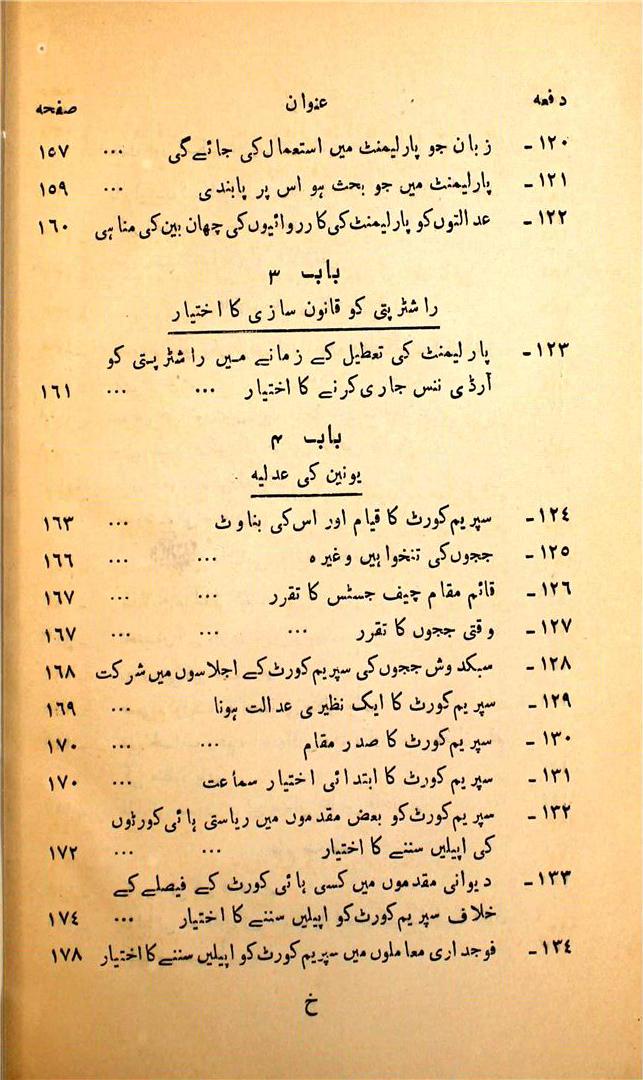 دفعہ عنوان صفحہ
۱۲۰- زبان جو پارلیمنٹ میں استعمال کی جائے گی ... ۱۵۷
۱۲۱- پارلیمنٹ میں جو بحث ہو اس پر پابندی ... ۱۵۹
۱۲۲- عدالتوں کو پارلیمنٹ کی کارروائیوں کی چھان بین کی مناہی ۱۶۰
باب ۳
راشٹرپتی کو قانون سازی کا اختیار
۱۲۳- پارلیمنٹ کی تعطیل کے زمانے میں راشٹرپتی کو
آرڈی ننس جاری کرنے کا اختیار ... ... ۱۶۱
باب ۴
یونین کی عدلیہ
۱۲۴- سپریم کورٹ کا قیام اور اس کی بناوٹ ... ۱۶۳
۱۲۵- ججوں کی تنخواہیں وغیرہ ... ... ۱۶۶
۱۲۶- قائم مقام چیف جسٹس کا تقرر ... ... ۱۶۷
۱۲۷- وقتی ججوں کا تقرر ... ... ... ۱۶۷
۱۲۸- سبکدوش ججوں کی سپریم کورٹ کے اجلاسوں میں شرکت ۱۶۸
۱۲۹- سپریم کورٹ کا ایک نظیری عدالت ہونا ... ۱۶۹
۱۳۰- سپریم کورٹ کا صدر مقام ... ... ۱۷۰
۱۳۱- سپریم کورٹ کا ابتدائی اختیار سماعت ... ۱۷۰
۱۳۲- سپریم کورٹ کو بعض مقدموں میں ریاستی ہائی کورٹوں
کی اپیلیں سننے کا اختیار ... ... ۱۷۲
۱۳۳- دیوانی مقدموں میں کسی ہائی کورٹ کے فیصلے کے
خلاف سپریم کورٹ کو اپیلیں سننے کا اختیار ... ۱۷۴
۱۳۴- فوجداری معاملوں میں سپریم کورٹ کو اپیلیں سننے کا اختیار ۱۷۸
خ